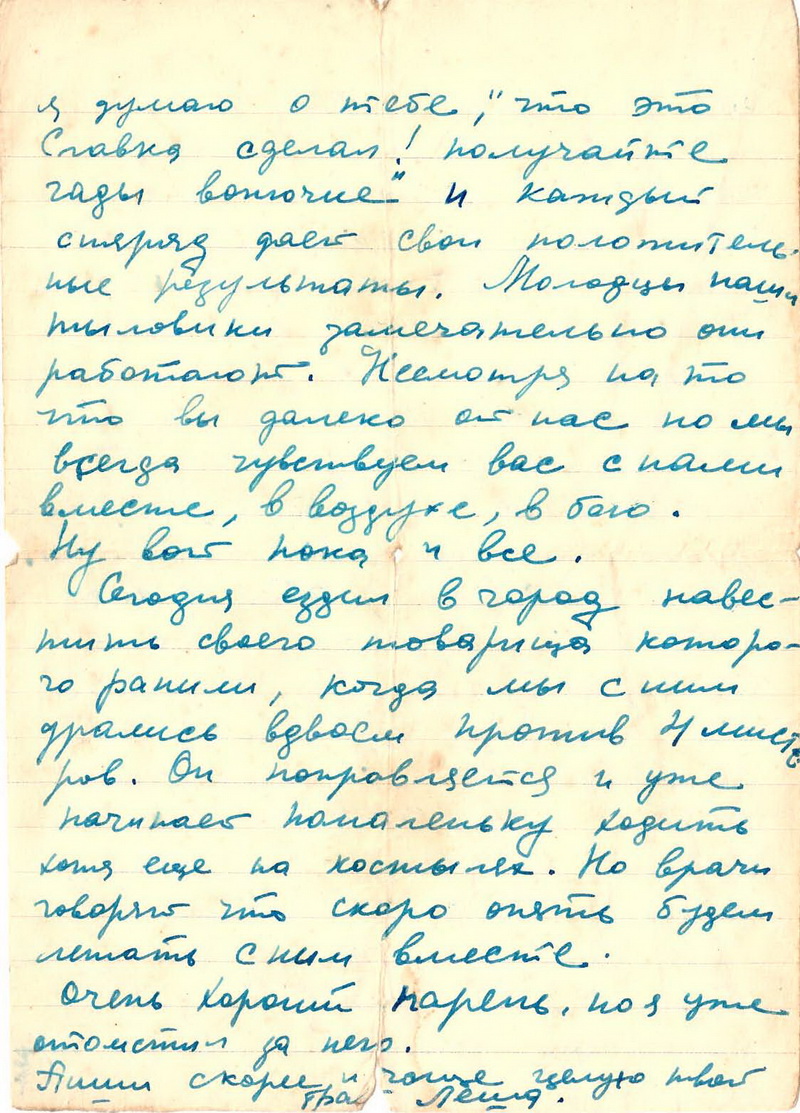 я думаю о тебе, "что это
Славка сделал! получайте
гады вонючие" и каждый
снаряд дает свои положитель-
ные результаты. Молодцы наши
тыловики замечательно они
работают. Несмотря на то
что вы далеко от нас но мы
всегда чувствуем вас с нами
вместе, в воздухе, в бою.
Ну вот пока и все.
Сегодня ездил в город навес-
тить своего товарища которо-
го ранили, когда мы с ним
дрались вдвоем против 4 мисте
ров. Он поправляется и уже
начинает помаленьку ходить
хотя еще на костылях. Но врачи
говорят что скоро опять будем
летать с ним вместе.
Очень хороший парень, но я уже
отомстил за него.
Пиши скорее и чаще целую твой
брат Леша.